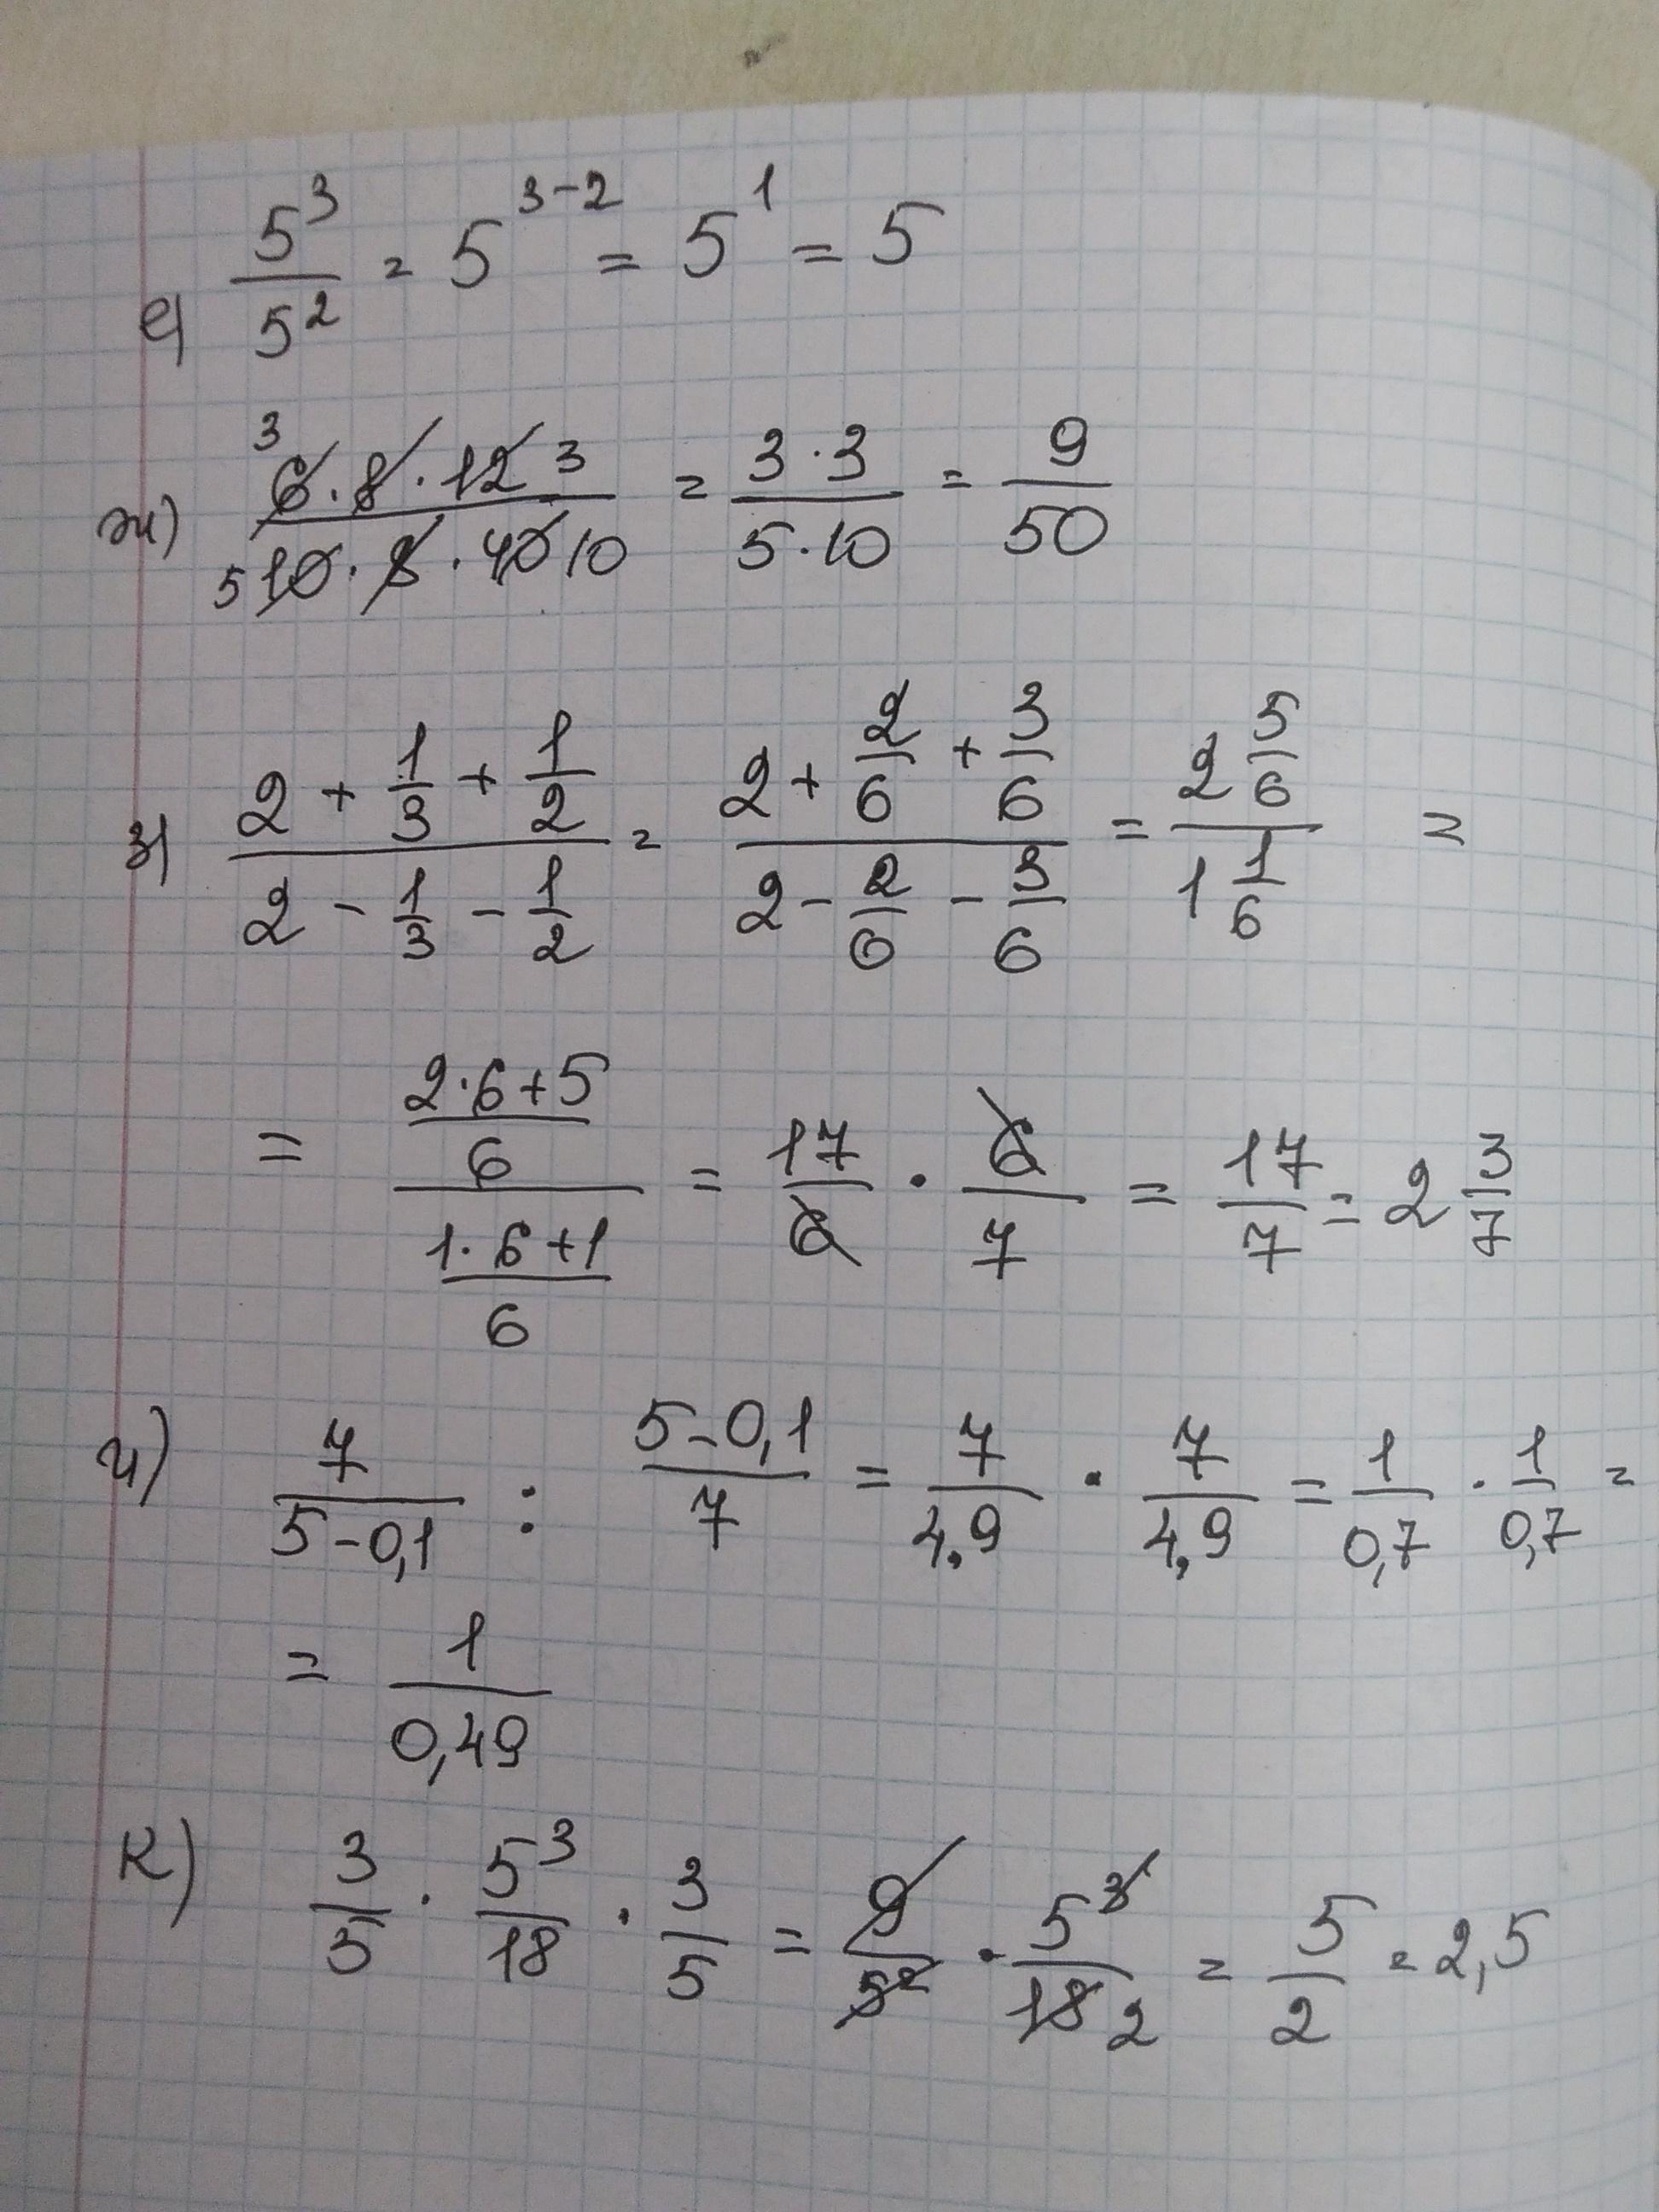 е) 5³/5² = 5³⁻² = 5¹ = 5
ж) ³6·8·12 3 / 5 10·8·40 10 = 3·3/5·10 = 9/50
з) (2 + 1/3 + 1/2)/(2 − 1/3 − 1/2) = (2 + 2/6 + 3/6)/(2 − 2/6 − 3/6) = (2 5/6)/(1 1/6) =
= ((2·6+5)/6)/((1·6+1)/6) = 17/6 · 6/7 = 17/7 = 2 3/7
и) 7/(5−0,1) : (5−0,1)/7 = 7/4,9 · 7/4,9 = 1/0,7 · 1/0,7 =
= 1/0,49
к) 3/5 · 5³/18 · 3/5 = 9/5² · 5³/18 2 = 5/2 = 2,5